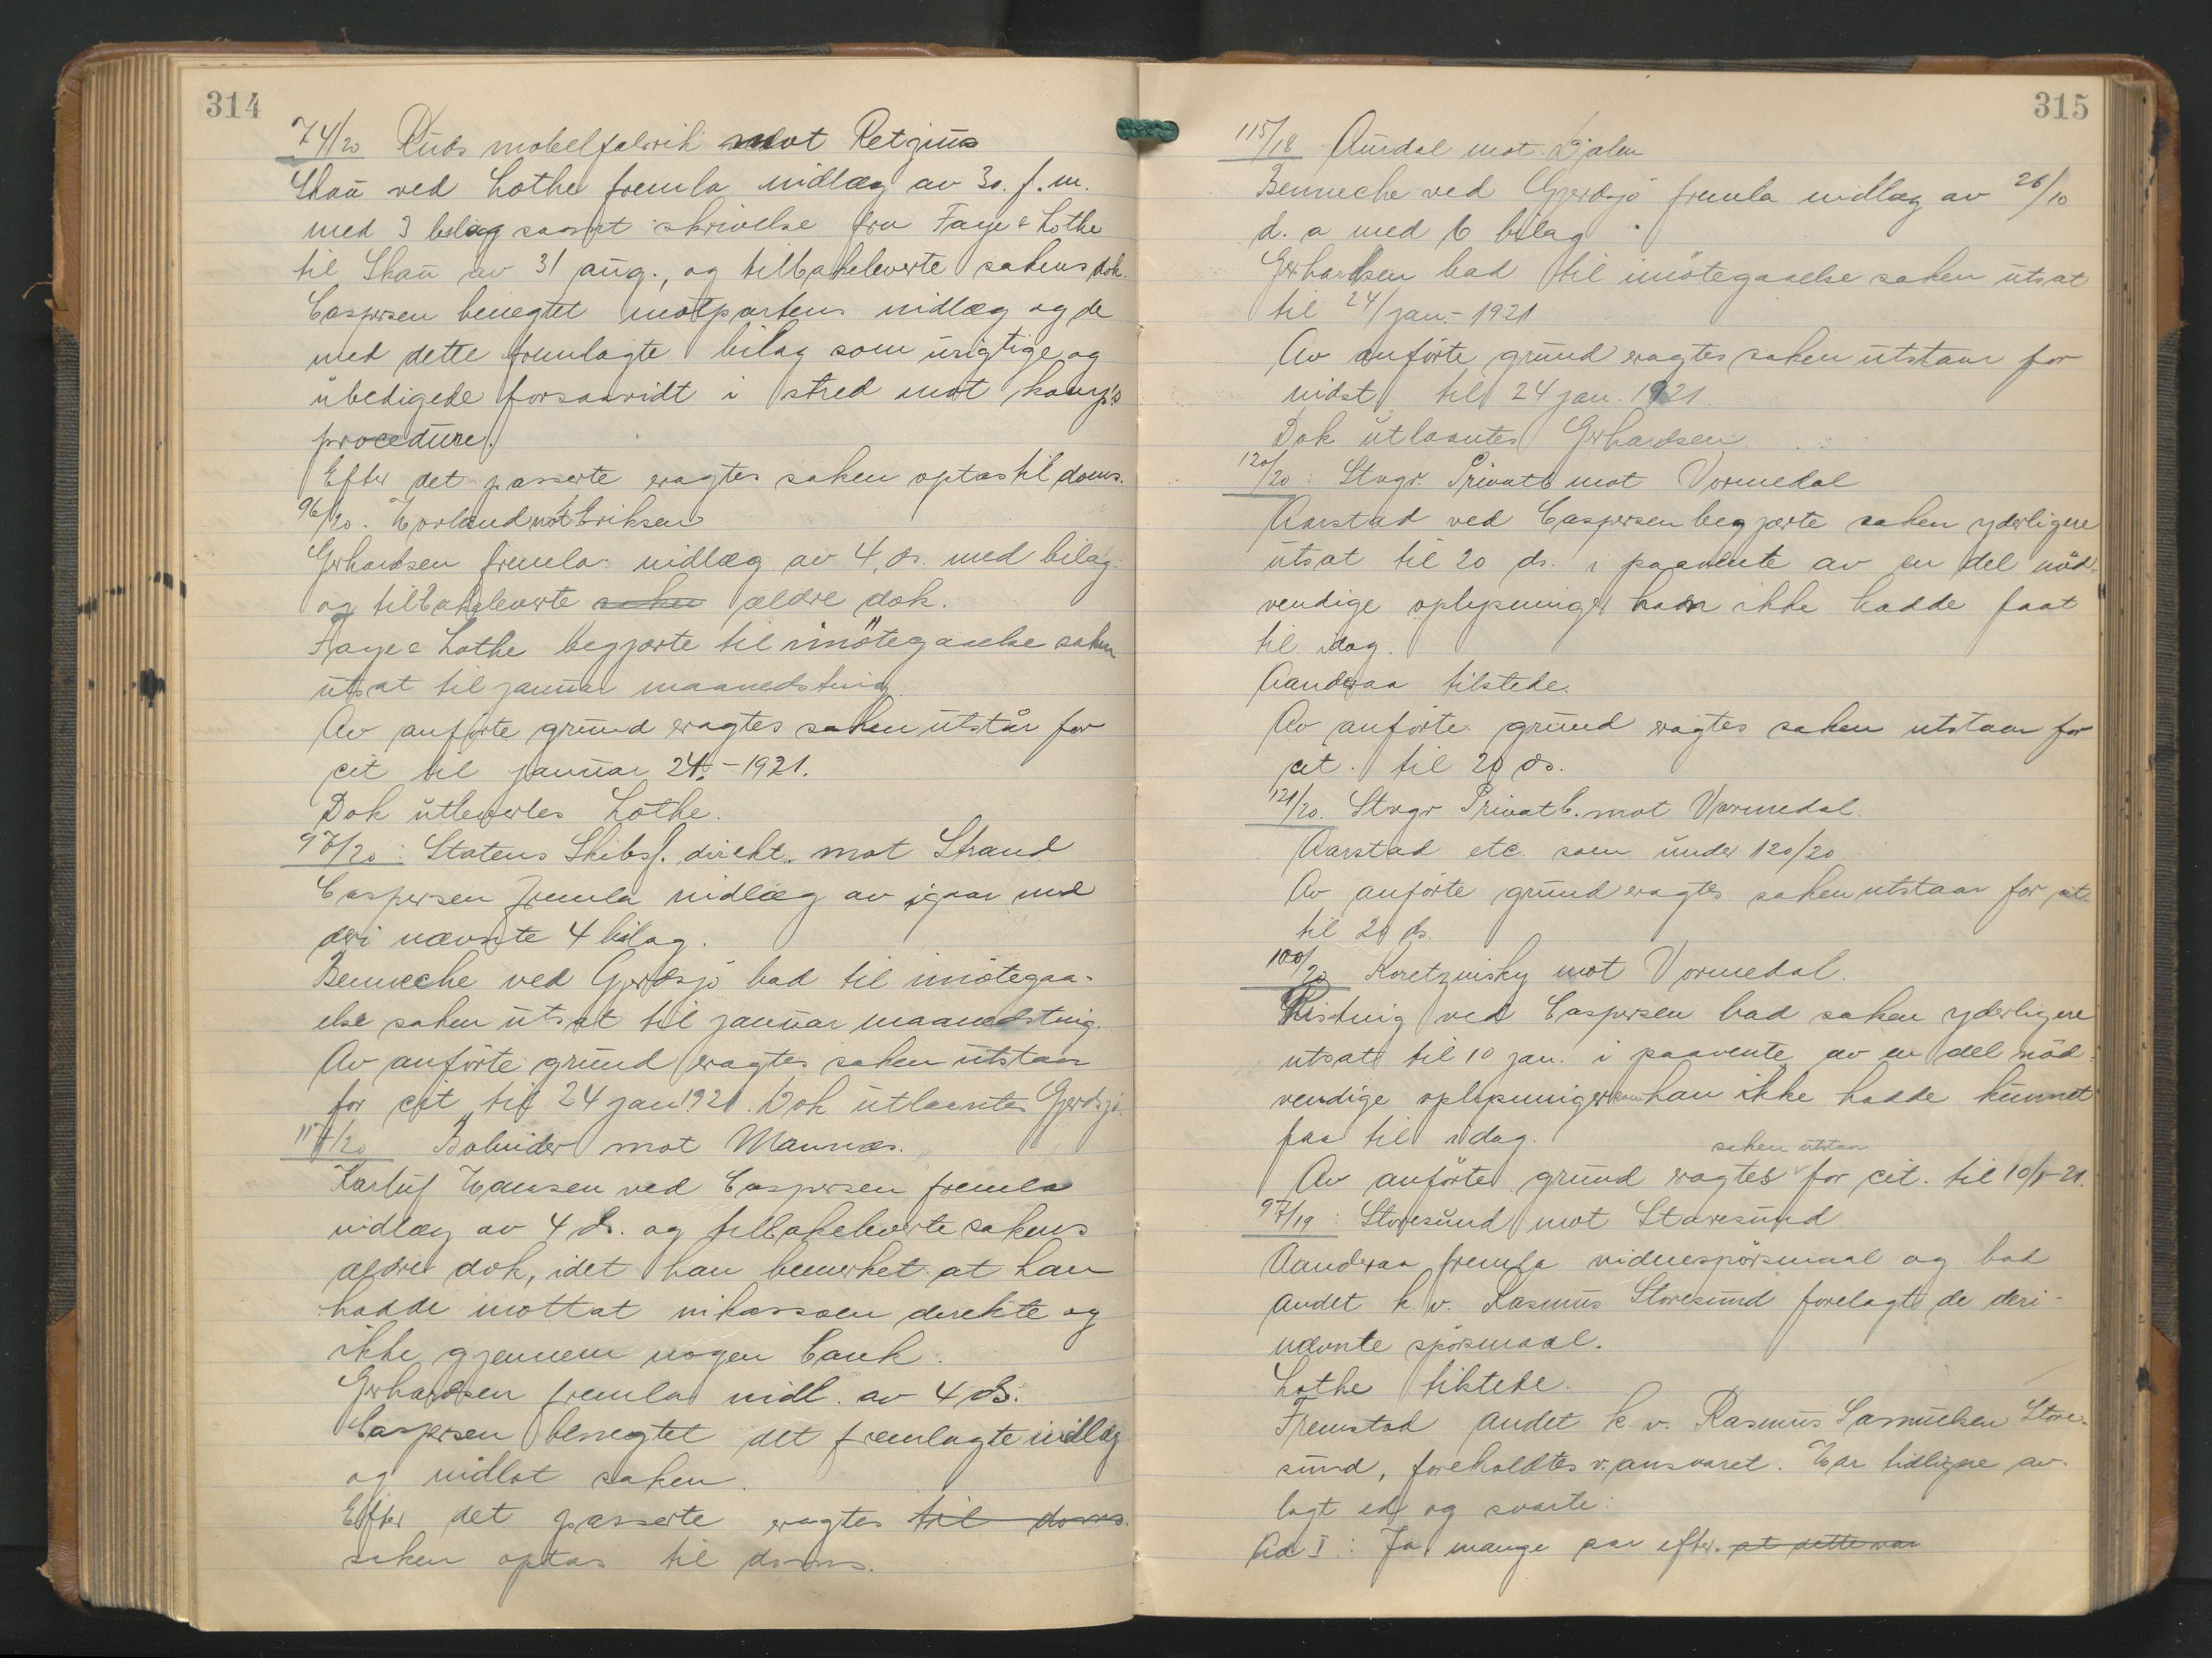 314
74/20 Ruds mobelfabrik mot Retzius
Skau ved Lothe fremla indlæg av 30. f. m.
med 3 bilag samt skrivelse fra Faye & Lothe
til Skau av 31 aug., og tilbakeleverte sakens dok.
Caspersen benegtet motpartens indlæg og de
med dette fremlagte bilag som urigtige og
ubedigede forsaavidt i stred mot
procedure.
Efter det passerte eragtes saken optas til doms.
96/20. mot Eriksen
Gerhardsen fremla indlæg av 4. ds. med bilag
og tilbakeleverte saken ældre dok.
Faye & Lothe begjærte til imøtegaaelse saken
utsat til januar maanedsting.
Av anførte grund eragtes saken utstår for
cit til januar 24.-1921.
Dok utlevertes Lothe.
97/20: Statens Skibsf. direkt. mot Strand
Caspersen fremla indlæg av igaar med
deri nævnte 4 bilag.
Benneche ved Gjerdsjø bad til imøtegaa-
else saken utsat til januar maanedsting.
Av anførte grund eragtes saken utstaar
for cit til 24 jan 1921. Dok utlaantes Gjerdsjø.
117/20 Bolinder mot Mannes.
Karluf Hanssen ved Caspersen fremla
indlæg av 4 ds. og tilbakeleverte sakens
ældre dok, idet han bemerket at han
hadde mottat inkassoen direkte og
ikke gjennem nogen bank.
Gerhardsen fremla indl. av 4 ds.
Caspersen benegtet det fremlagte indlæg
og indlot saken.
Efter det passerte eragtes til doms.
saken optas til doms.
315
115/18 Aurdal mot Djalen
Benneche ved Gjerdsjø fremla indlæg av 26/10
d. a med 6 bilag
Gerhardsen bad til imøtegaaelse saken utsat
til 24/jan.- 1921
Av anførte grund eragtes saken utstaar for
indst. til 24 jan. 1921
Dok utlaantes Gerhardsen
120/20: Stvgr. Privatb mot Vormedal
Aarstad ved Caspersen begjærte saken yderligere
utsat til 20 ds. i paavente av en del nød-
vendige oplysninger han ikke hadde faat
til idag.
Aanderaa tilstede.
Av anførte grund eragtes saken utstaar for
cit. til 20 ds.
121/20. Stvgr Privatb. mot Vormedal.
Aarstad etc. som under 120/20
Av anførte grund eragtes saken utstaar for cit
til 20 ds.
100/20 Koretzinsky mot Vormedal.
ved Caspersen bad saken yderligere
utsat til 10 jan. i paavente av en del nød-
vendige oplysninger som han ikke hadde kunnet
faa til idag.
saken utstaar
Av anførte grund eragtes for cit. til 10/1-21.
97/19: Storesund mot Storesund
Aanderaa fremla vidnespørsmaal og bad
andet k. v. Rasmus Storesund forelagt de deri-
nævnte spørsmaal.
Lothe tilstede.
Fremstod andet k. v. Rasmus Samuelsen Store-
sund, foreholdtes v. ansvaret. Har tidligere av-
lagt ed og svarte:
Ad I: Ja mange aar efter. at dette var